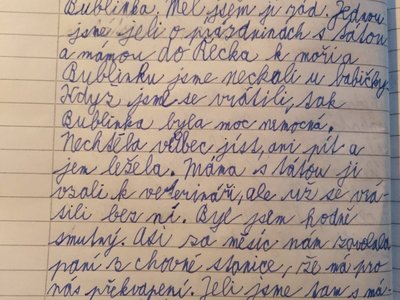 Bublinka. Měl jsem ji rád. Jednou
jsme jeli o prázdninách s tátou
a mámou do Řecka k moři a
Bublinku jsme nechali u babičky.
Když jsme se vrátili, tak
Bublinka byla moc nemocná.
Nechtěla vůbec jíst, ani pít a
jen ležela. Máma s tátou ji
vzali k veterináři, ale už se vrá-
tili bez ní. Byl jsem hodně
smutný. Asi za měsíc nám zavolala
paní z chovné stanice, že má pro
nás překvapení. Jeli jsme tam s má-